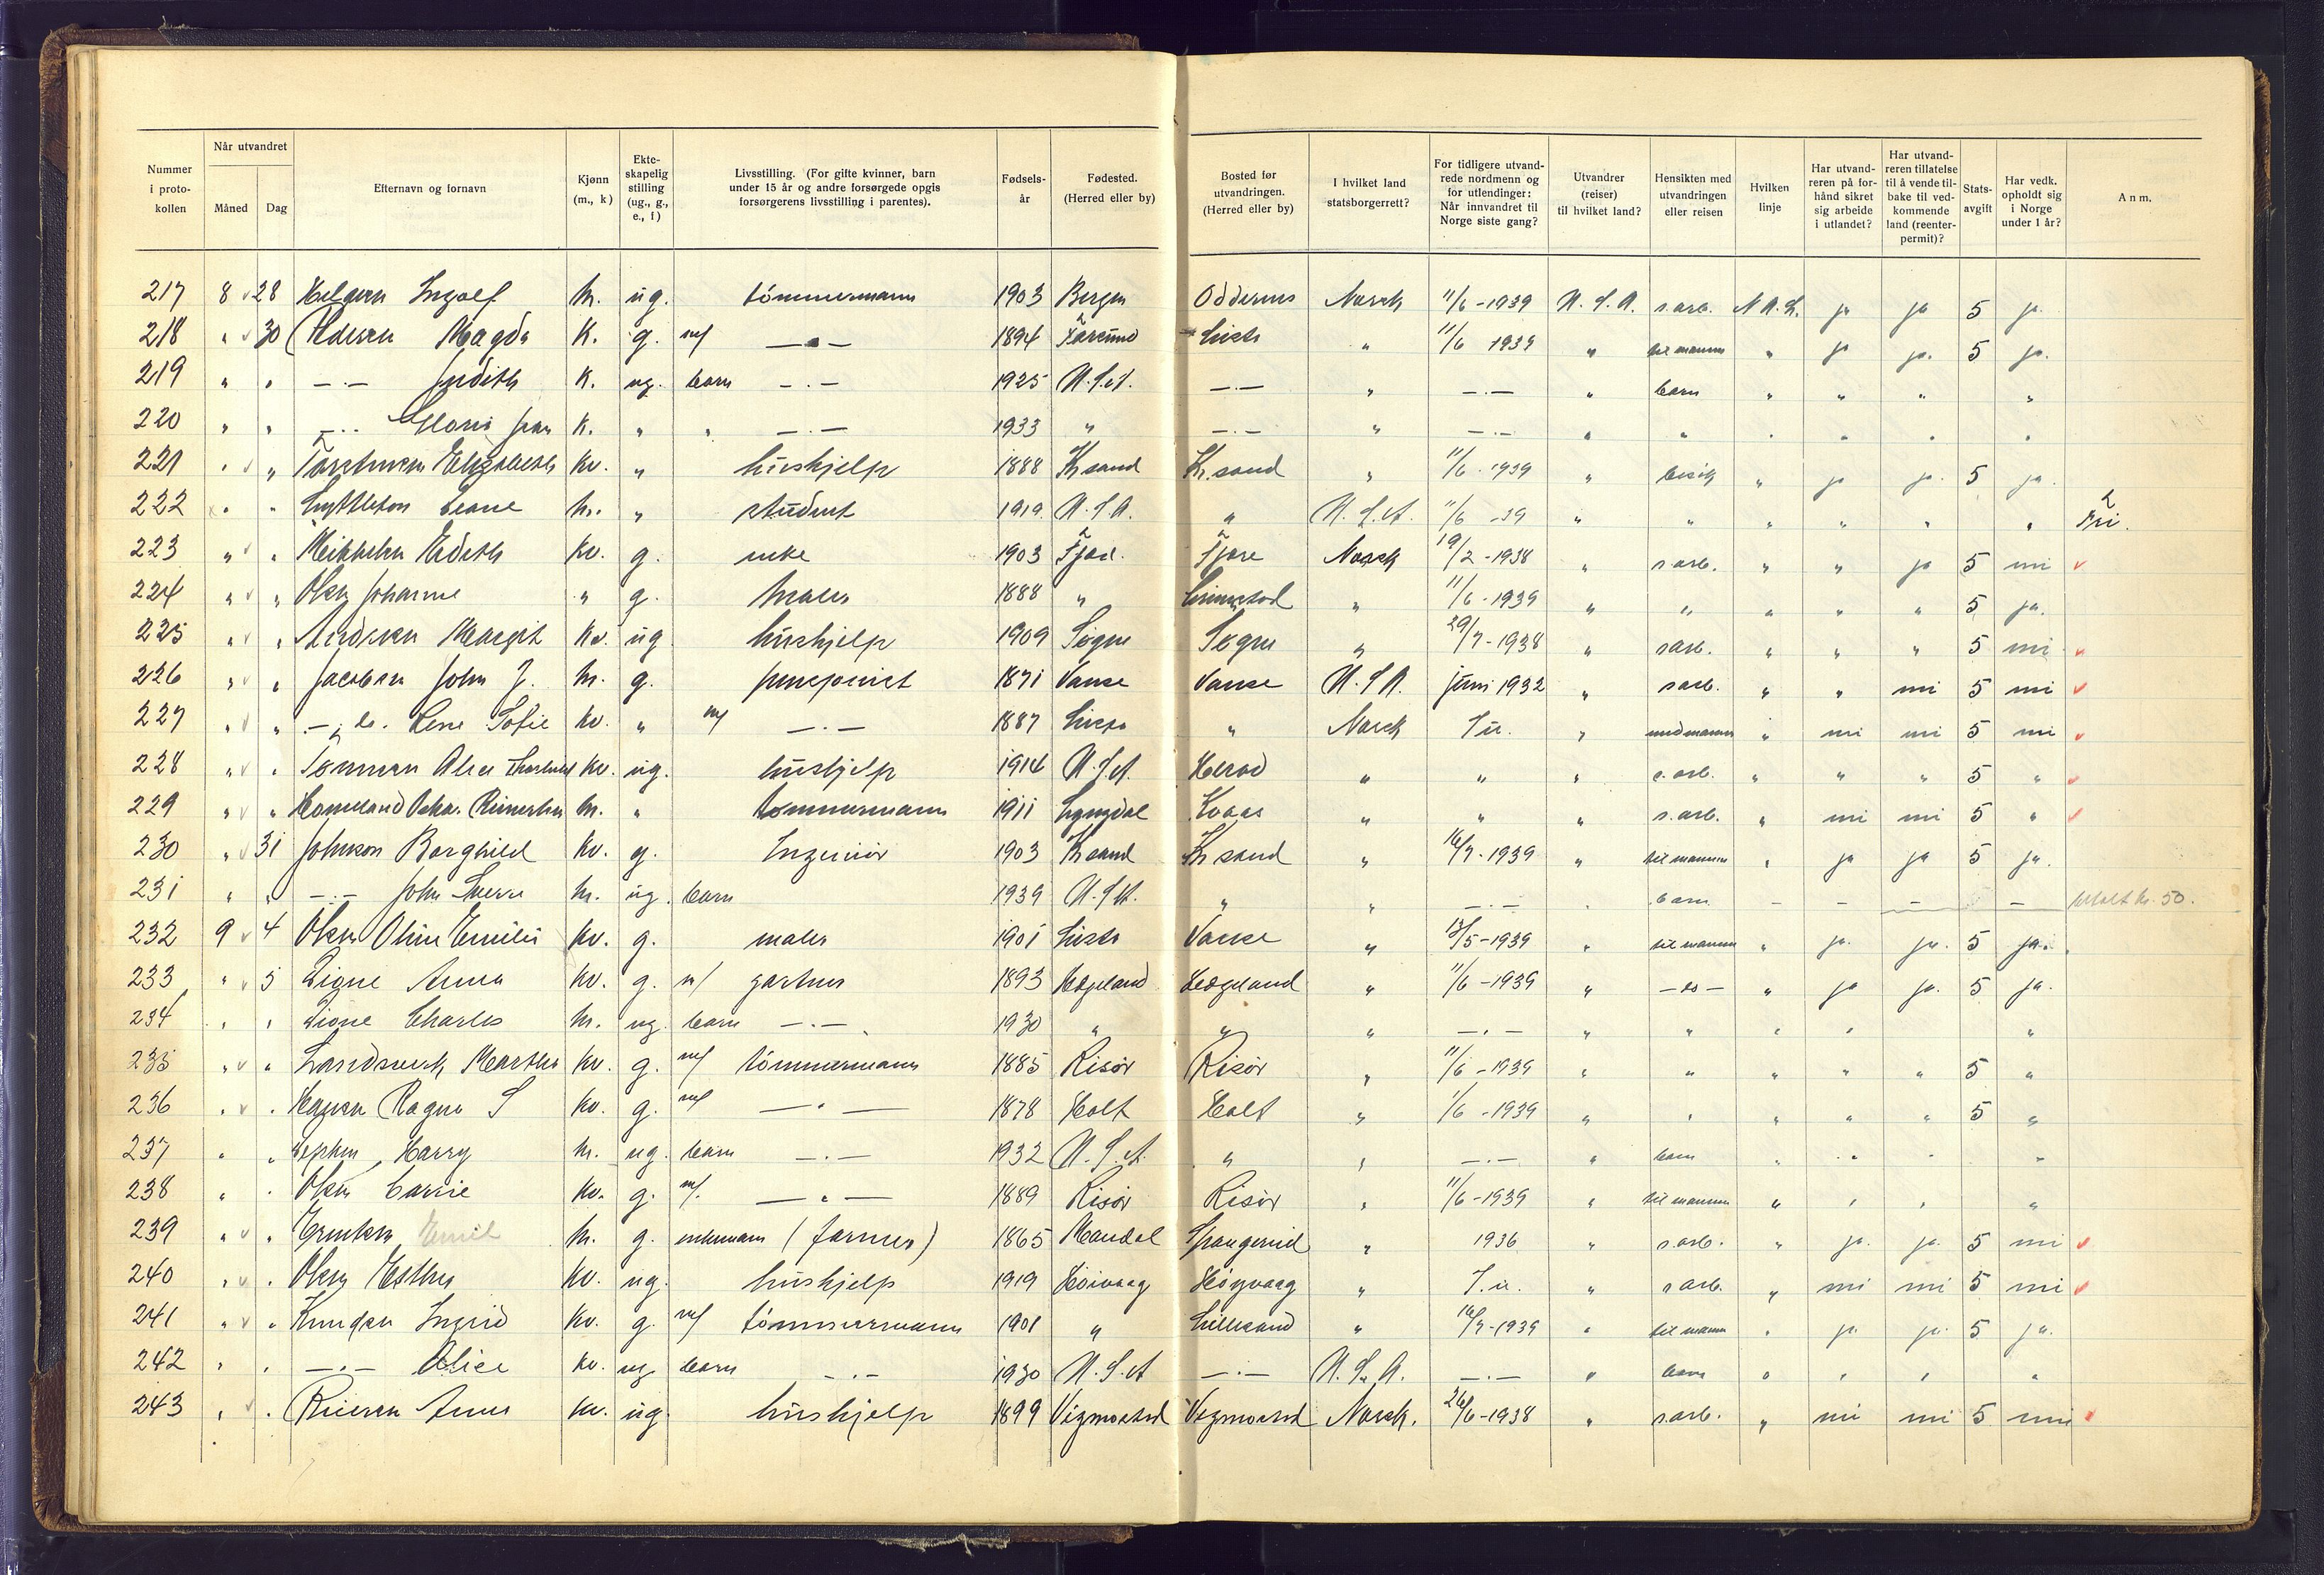 Nummer i protokollen | Når utvandret Måned | Dag | Efternavn og fornavn | Kjønn (m., k) | Ekteskapelig stilling (ug., g., e., f) | Livsstilling. (For gifte kvinner, barn under 15 år og andre forsørgede opgis forsørgerens livsstilling i parentes). | Fødselsår | Fødested. (Herred eller by) | Bosted før utvandringen. (Herred eller by) | I hvilket land statsborgerrett? | For tidligere utvandrede nordmenn og for utlendinger: Når innvandret til Norge siste gang? | Utvandrer (reiser) til hvilket land? | Hensikten med utvandringen eller reisen | Hvilken linje | Har utvandreren på forhånd sikret sig arbeide i utlandet? | Har utvandreren tillatelse til å vende tilbake til vedkommende land (reenterpermit)? | Statsavgift | Har vedk. opholdt sig i Norge under 1 år? | Anm.
217 8 v 28 Ingolf m. ug. tömmermann 1903 Bergen Oddernes Norsk 11/6-1939 U.S.A. s.arb. N.A.L. ja ja 5 ja.
218 " v 30 Magda K. g. m/ —"— 1894 Farsund Lista " 11/6 1939 " til mannen " ja ja. 5 ja.
219 " " —.— Judith K. ug. barn —.— 1925 U.S.A. —.— " —.— " barn " " " "
220 " " —.— Gloria Jean K. " " —.— 1933 " —.— " —.— " " " " " "
221 " v " Elizabeth Kv. " hushjelp 1888 Kr.sand Kr.sand " 11/6-1939 " besök " ja ja. 5 ja.
222 " " Lyttleton m. " student 1919 U.S.A. " U.S.A. 11/6-39 " " " " " " Fri.
223 " v " Edith Kv. g. enke 1903 Fjære Fjære Norsk 19/2-1938 " s.arb. " " ja 5 nei v
224 " v " Olsen Johanne " g. maler 1888 " Grimstad " 11/6-1939 " " " " " 5 ja.
225 " v " Margit Kv. ug hushjelp 1909 Søgne Søgne " 29/7-1938 " s.arb. " " " 5 nei v
226 " v " Jacobsen John J. m. g. pensjonist 1871 Vanse Vanse U.S.A. juni 1932 " s.arb. " " nei 5 nei v
227 " v " —"— Lene Sofie Kv. " m/ —.— 1887 Lista " Norsk " med mannen " nei nei 5 nei v
228 " v " Tønnesen Alice Kv. ug. hushjelp 1914 U.S.A. Herad " " " s.arb. " " " 5 " v
229 " v " m. " tømmermann 1911 Lyngdal Kvaas " " " s.arb. " nei nei 5 " v
230 " v 31 Johnson Borghild Kv. g. Ingeniør 1903 Kr.sand Kr.sand " 16/7-1939 " til mannen " ja ja 5 ja.
231 " " —.— John Sverre m. ug. barn 1939 U.S.A. " " —.— " barn — — — — betalt kr. 50.
232 9 v 4 Olsen Kv. g. maler 1901 Lista Vanse " 13/5-1939 " til mannen " ja. ja. 5 ja.
233 " v 5 Anna Kv. g. m/ gartner 1893 Hægeland Hægeland " 11/6-1939 " —do— " ja ja. 5 ja.
234 " " Charles m. ug. barn —.— 1930 " " " —.— " " " " "
235 " v " Landsverk Martha Kv. g. m/ tömmermann 1885 Risør Risør " 11/6-1939 " " " " " 5 "
236 " v " Ragna S Kv. g. m/ —"— 1878 Holt Holt " 1/6-1939 " " " " " 5 "
237 " " Harry m. ug. barn —.— 1932 U.S.A. " " —.— " barn " " " "
238 " " Olsen Carrie Kv. g. m/ —"— 1889 Risør Risør " 11/6-1939 " til mannen " " " "
239 " v " Emil m. g. enkemann (farmer) 1865 Mandal Spangereid " 1936 " s.arb. " ja. ja. 5 nei v
240 " v " Olsen Esther Kv. ug. hushjelp 1919 Høivaag Høyvaag " " s.arb. " nei nei 5 nei v
241 " v " Knudsen Ingrid Kv. g. m/ tömmermann 1901 " Lillesand " 16/7-1939 " til mann " ja. ja. 5 ja.
242 " " —.— Alice kv. ug. barn —.— 1930 U.S.A —.— U.S.A. —.— " barn " " " "
243 " v " Anna kv. ug. hushjelp 1899 Vigmostad Vigmostad Norsk. 26/6-1938 " s.arb. " nei nei 5 nei v